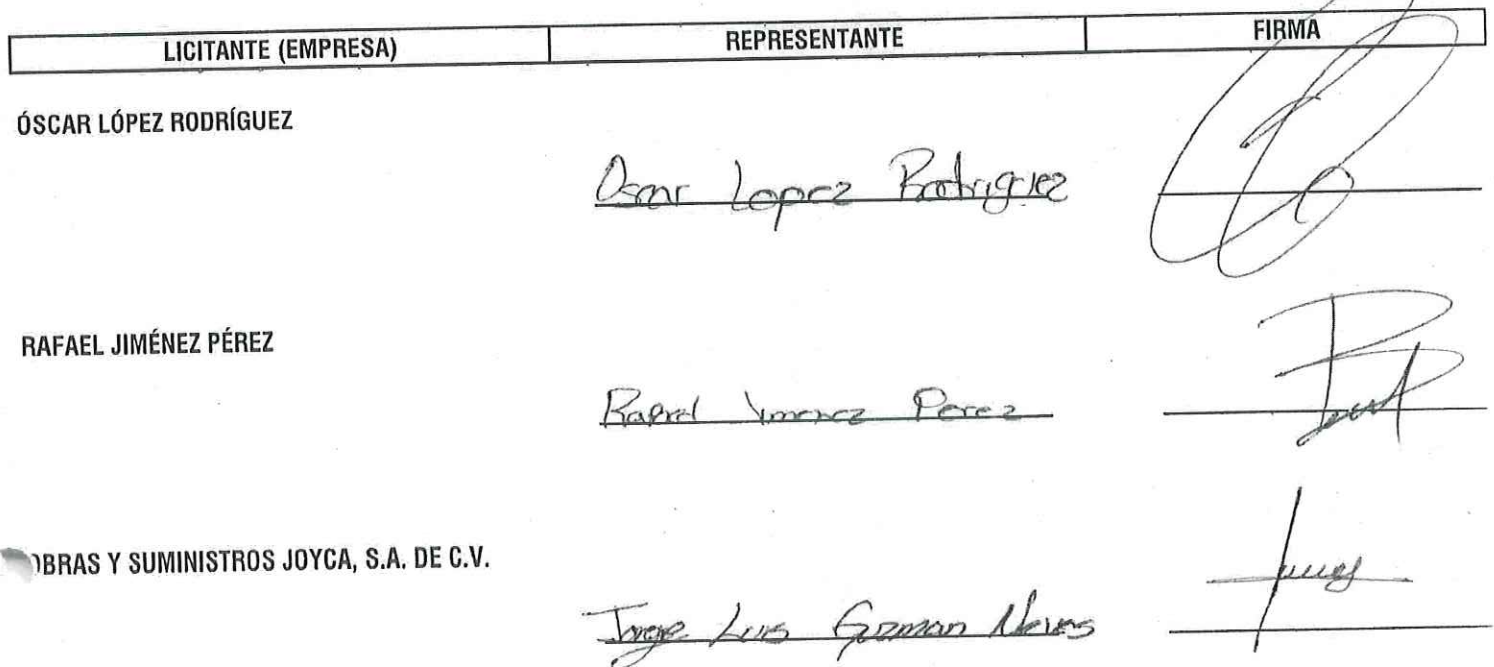 LICITANTE (EMPRESA) REPRESENTANTE FIRMA
ÓSCAR LÓPEZ RODRÍGUEZ
Oscar Lopez Rodriguez
RAFAEL JIMÉNEZ PÉREZ
Rafael Jimenez Perez
OBRAS Y SUMINISTROS JOYCA, S.A. DE C.V.
Jorge Luis Guzman Nieves